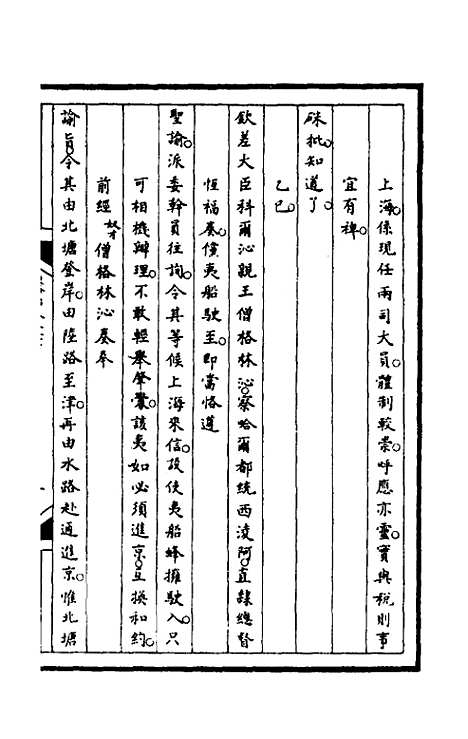 上海。係現任兩司大員。體制較崇。呼應亦靈。實與稅則事
宜有裨。
硃批。知道了。
乙巳。
欽差大臣科爾沁親王僧格林沁。察哈爾都統西淩阿。直隸總督
恆福奏。儻夷船駛至。即當恪遵
聖諭。派委幹員往詢。令其等候上海來信。設使夷船蜂擁駛入。只
可相機辦理。不敢輕舉肇釁。該夷如必須進京。互換和約。
前經奴才僧格林沁奏奉
諭旨。令其由北塘登岸。由陸路至津。再由水路赴通進京。惟北塘